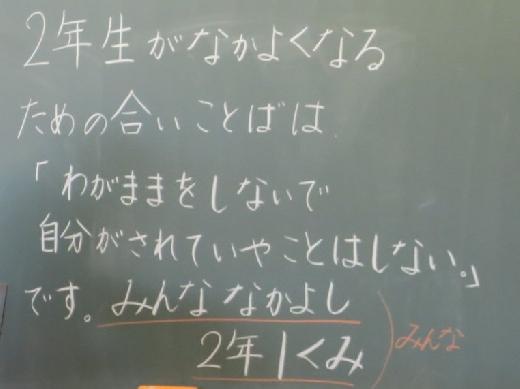 2年生がなかよくなる
ための合いことばは、
「わがままをしないで
自分がされていやことはしない。」
です。みんななかよし
2年1くみ
みんな